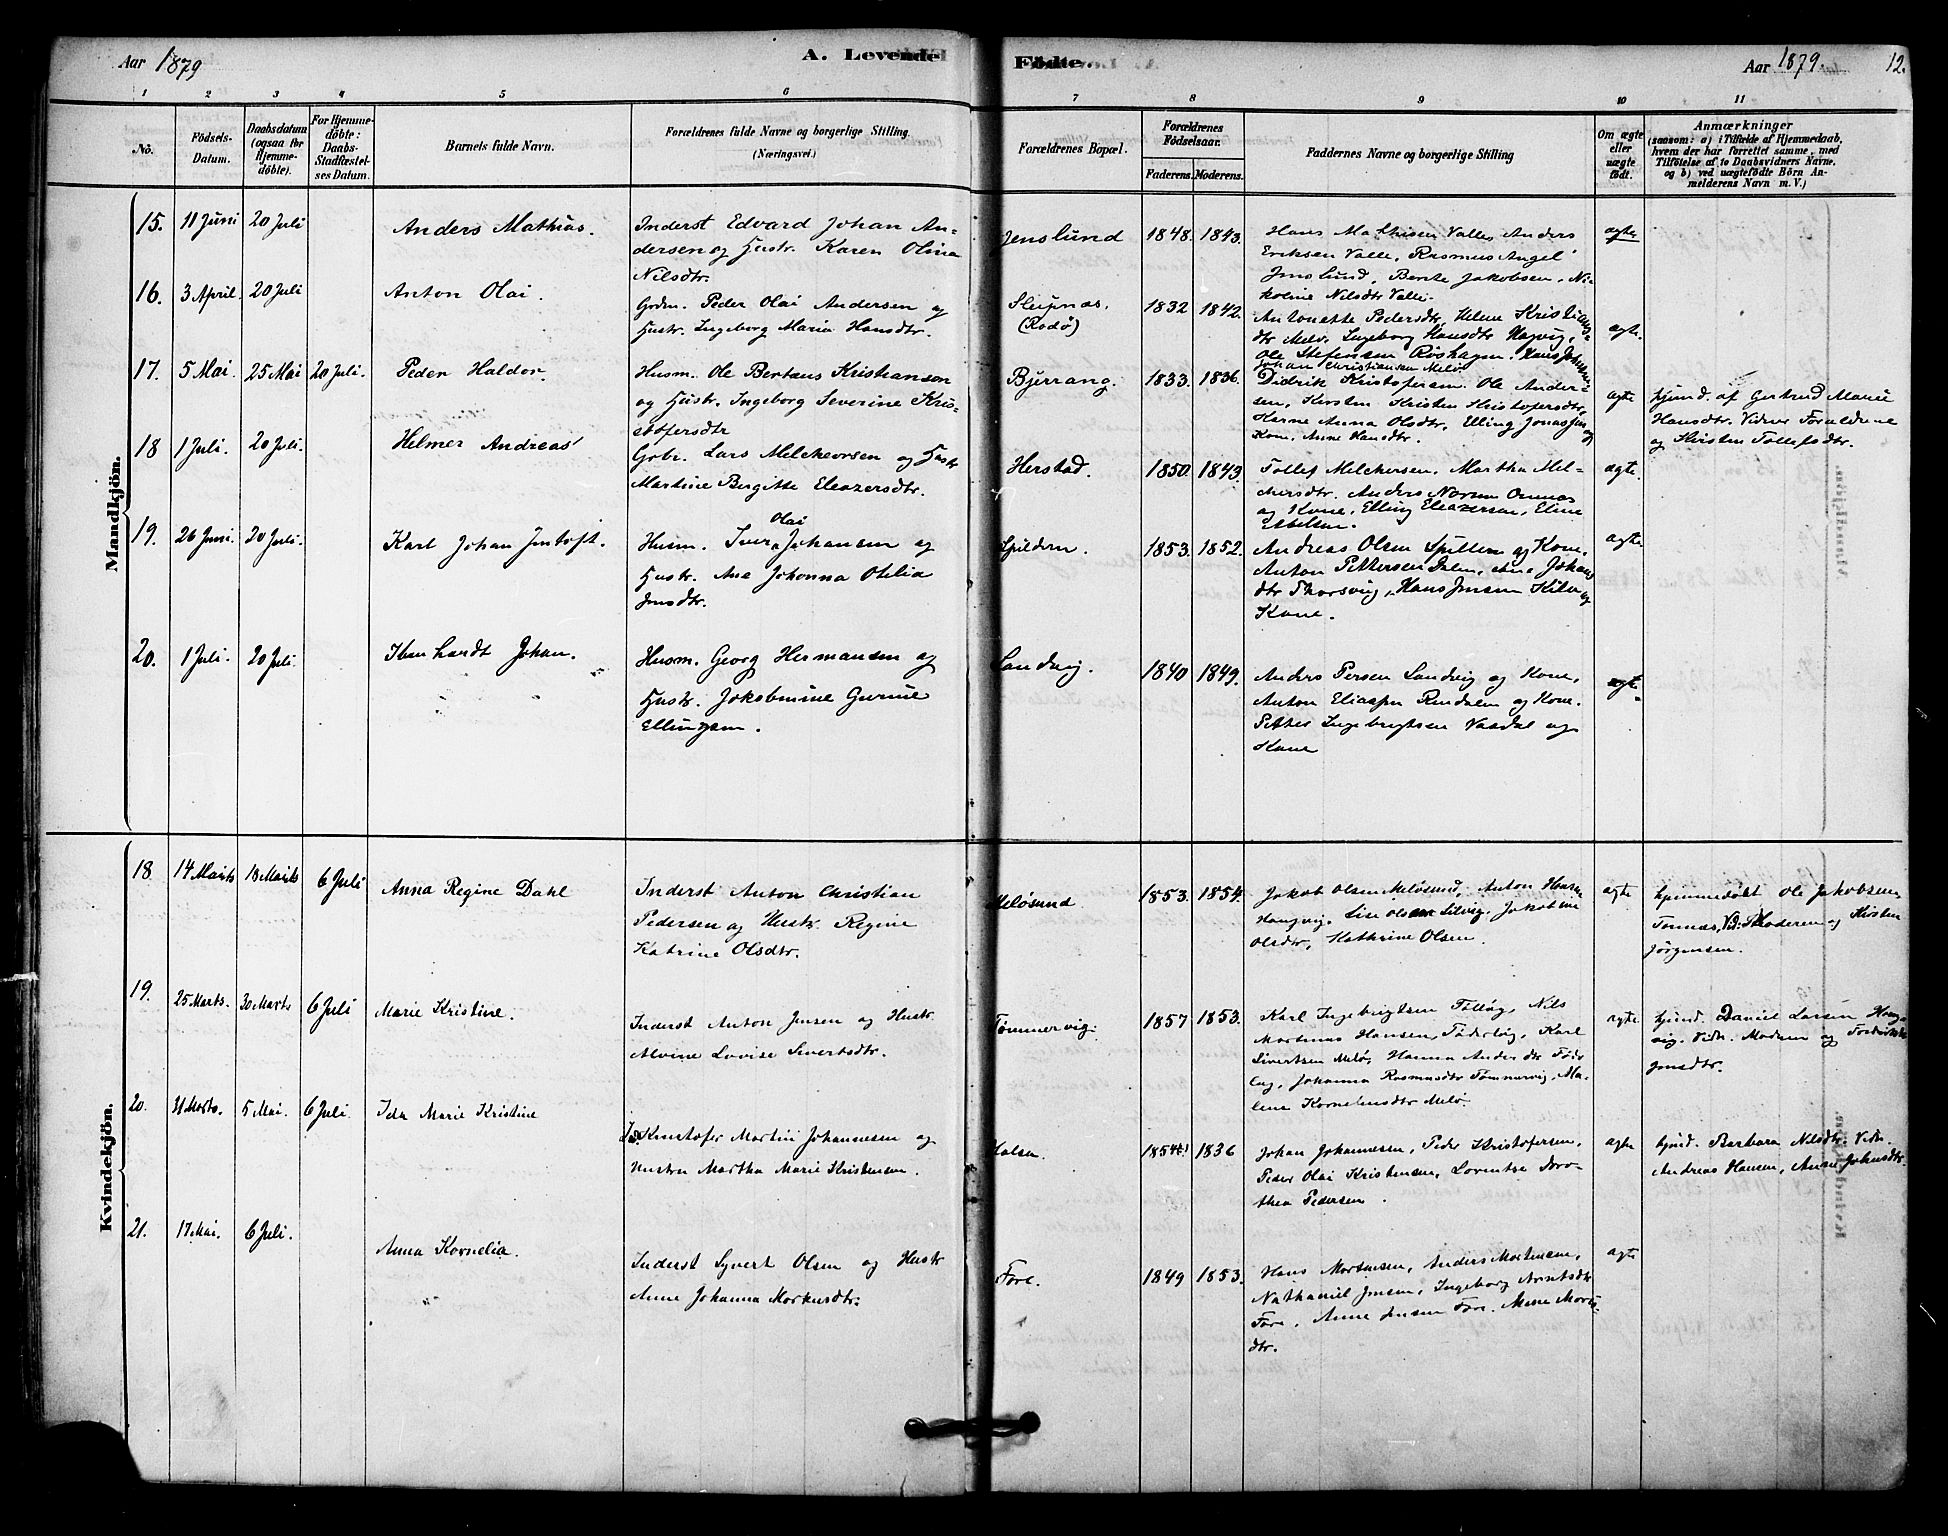 Aar 1879
A. Levende
Födte.
Aar 1879.
12.
1 2 3 4 5 6 7 8 9 10 11
No.
Födsels-Datum.
Daabsdatum (ogsaa for Hjemme-döbte).
For Hjemme-döbte: Daabs-Stadfæstel-ses Datum.
Barnets fulde Navn.
Forældrenes fulde Navne og borgerlige Stilling
(Næringsvei.)
Forældrenes Bopæl.
Forældrenes Födselsaar.
Faderens. Moderens.
Faddernes Navne og borgerlige Stilling
Om ægte eller uægte födt.
Anmærkninger
(saasom: a) i Tilfælde af Hjemmedaab,
hvem der har forrettet samme, med
Tilföielse af to Daabsvidners Navne,
og b) ved uægtefödte Börn An-
melderens Navn m. V.)
Mandkjön.
15. 11 Juni 20 Juli
Anders Mathias.
Inderst Edvard Johan An-
dersen og Hustr. Karen Olina
Nilsdtr.
Jenslund
1848. 1843.
Hans Mathisen Valle, Anders
Eriksen Valle, Rasmus Angel
Jenslund, Berte Jakobsen, Ni-
koline Nilsdtr Valle.
ægte
16. 3 April. 20 Juli
Anton Olai.
Grdm. Peder Olai Andersen og
Hustr. Ingeborg Maria Hansdtr.
Sleipnæs.
(Rødø)
1832 1842.
Antonette Pedersdtr, Helene Kristians-
dtr Melø, Ingeborg Hansdtr Hagvig,
Ole Stefensen Røshagen. Hans Johansen
Johan Christiansen Melø
ægte.
17. 5 Mai. 25 Mai 20 Juli.
Peder Haldor.
Husm. Ole Bertæus Kristiansen
og Hustr. Ingeborg Severine Kris-
stofersdtr
Bjerrang.
1833. 1836.
Didrik Kristofersen. Ole Ander-
sen, Kirsten Kristen Kristofersdtr,
Hanna Anna Olsdtr, Elling Jonassen og
Kone, Anne Hansdtr.
ægte
hjemd. af Gertrud Marie
Hansdtr. Vidner Forældrene
og Kirsten Tollefsdtr.
18 1 Juli. 20 Juli.
Helmer Andreas
Grbr. Lars Melcheorsen og Hustr
Martine Bergitte Eleazersdtr.
Herstad.
1850. 1843.
Tollef Melchersen, Martha Mel-
chersdtr. Anders Normn Omnæs
og Kone, Elling Eleazersen, Eline
Esbelsen.
ægte.
19. 26 Juni. 20 Juli.
Karl Johan Jentoft.
Husm. Iver Olai Johansen og
Hustr. Ane Johanna Otelia
Jensdtr.
Spildern.
1853. 1852.
Andreas Olsen Spillern og Kone.
Anton Pettersen Dalen, Ane Johans
dtr Thorsvig, Hans Jensen Kilen og
Kone.
ægte.
20. 1 Juli. 20 Juli.
Ibenhardt Johan.
Husm. Georg Hermansen og
Hustr. Jakobmine Gurine
Ellingsen.
Sandvig.
1840 1849.
Anders Persen Sandvig og Kone,
Anton Eliassen Rendalen og Kone.
Petter Ingebrigtsen Vaadal og
Kone
ægte
Kvindekjön.
18 14 Marts 18 Marts 6 Juli
Anna Regine Dahl
Inderst Anton Christian
Pedersen og Hustr. Regine
Katrine Olsdtr.
Meløsund
1853. 1854.
Jakob Olsen Meløsund, Anton Hansen
Haugvig, Lise Olsen Selvig, Jakobine
Olsdtr, Kathrine Olsen.
ægte
hjemmedøbt Ole Jakobsen
Tønnæs, Vid: Moderen og Kirsten
Jørgensen.
19. 25 Marts. 30 Marts 6 Juli
Marie Kristine.
Inderst Anton Jensen og Hustr.
Alvine Lovise Sivertsdtr.
Tømmervig.
1857 1853.
Karl Ingebrigtsen Følløg, Nils
Mortinus Hansen, Føderløg, Karl
Sivertsen Melø, Hanna Andersdtr Føder
løg, Johanna Rasmusdtr Tømmervig, Ma-
lene Korneliusdtr Melø.
ægte
hjemd. Daniel Larsen Haug-
vig. Vidn. Moderen og Fredrikke
Jensdtr.
20. 21 Marts. 5 Mai. 6 Juli.
Ida Marie Kristine
Ind. Kristofer Martin Johannesen og
Hustru Martha Marie Kristensen.
Halsen.
1854 1836
Johan Johannesen, Peder Kristofersen,
Peder Olai Kristensen, Lorentse Doro-
thea Pedersen.
ægte
hjemd. Barbara Nilsdtr. Vidn.
Andreas Hansen, Anne Johnsdtr.
21. 17 Mai. 6 Juli.
Anna Kornelia.
Inderst Syvert Olsen og Hustr
Anne Johanna Markusdtr.
Fore.
1849 1853.
Hans Mortensen, Anders Mortensen,
Nathaniel Jensen, Ingeborg Arntsdtr
Fore, Anne Jensen Fore. Anne Moris-
dtr.
ægte